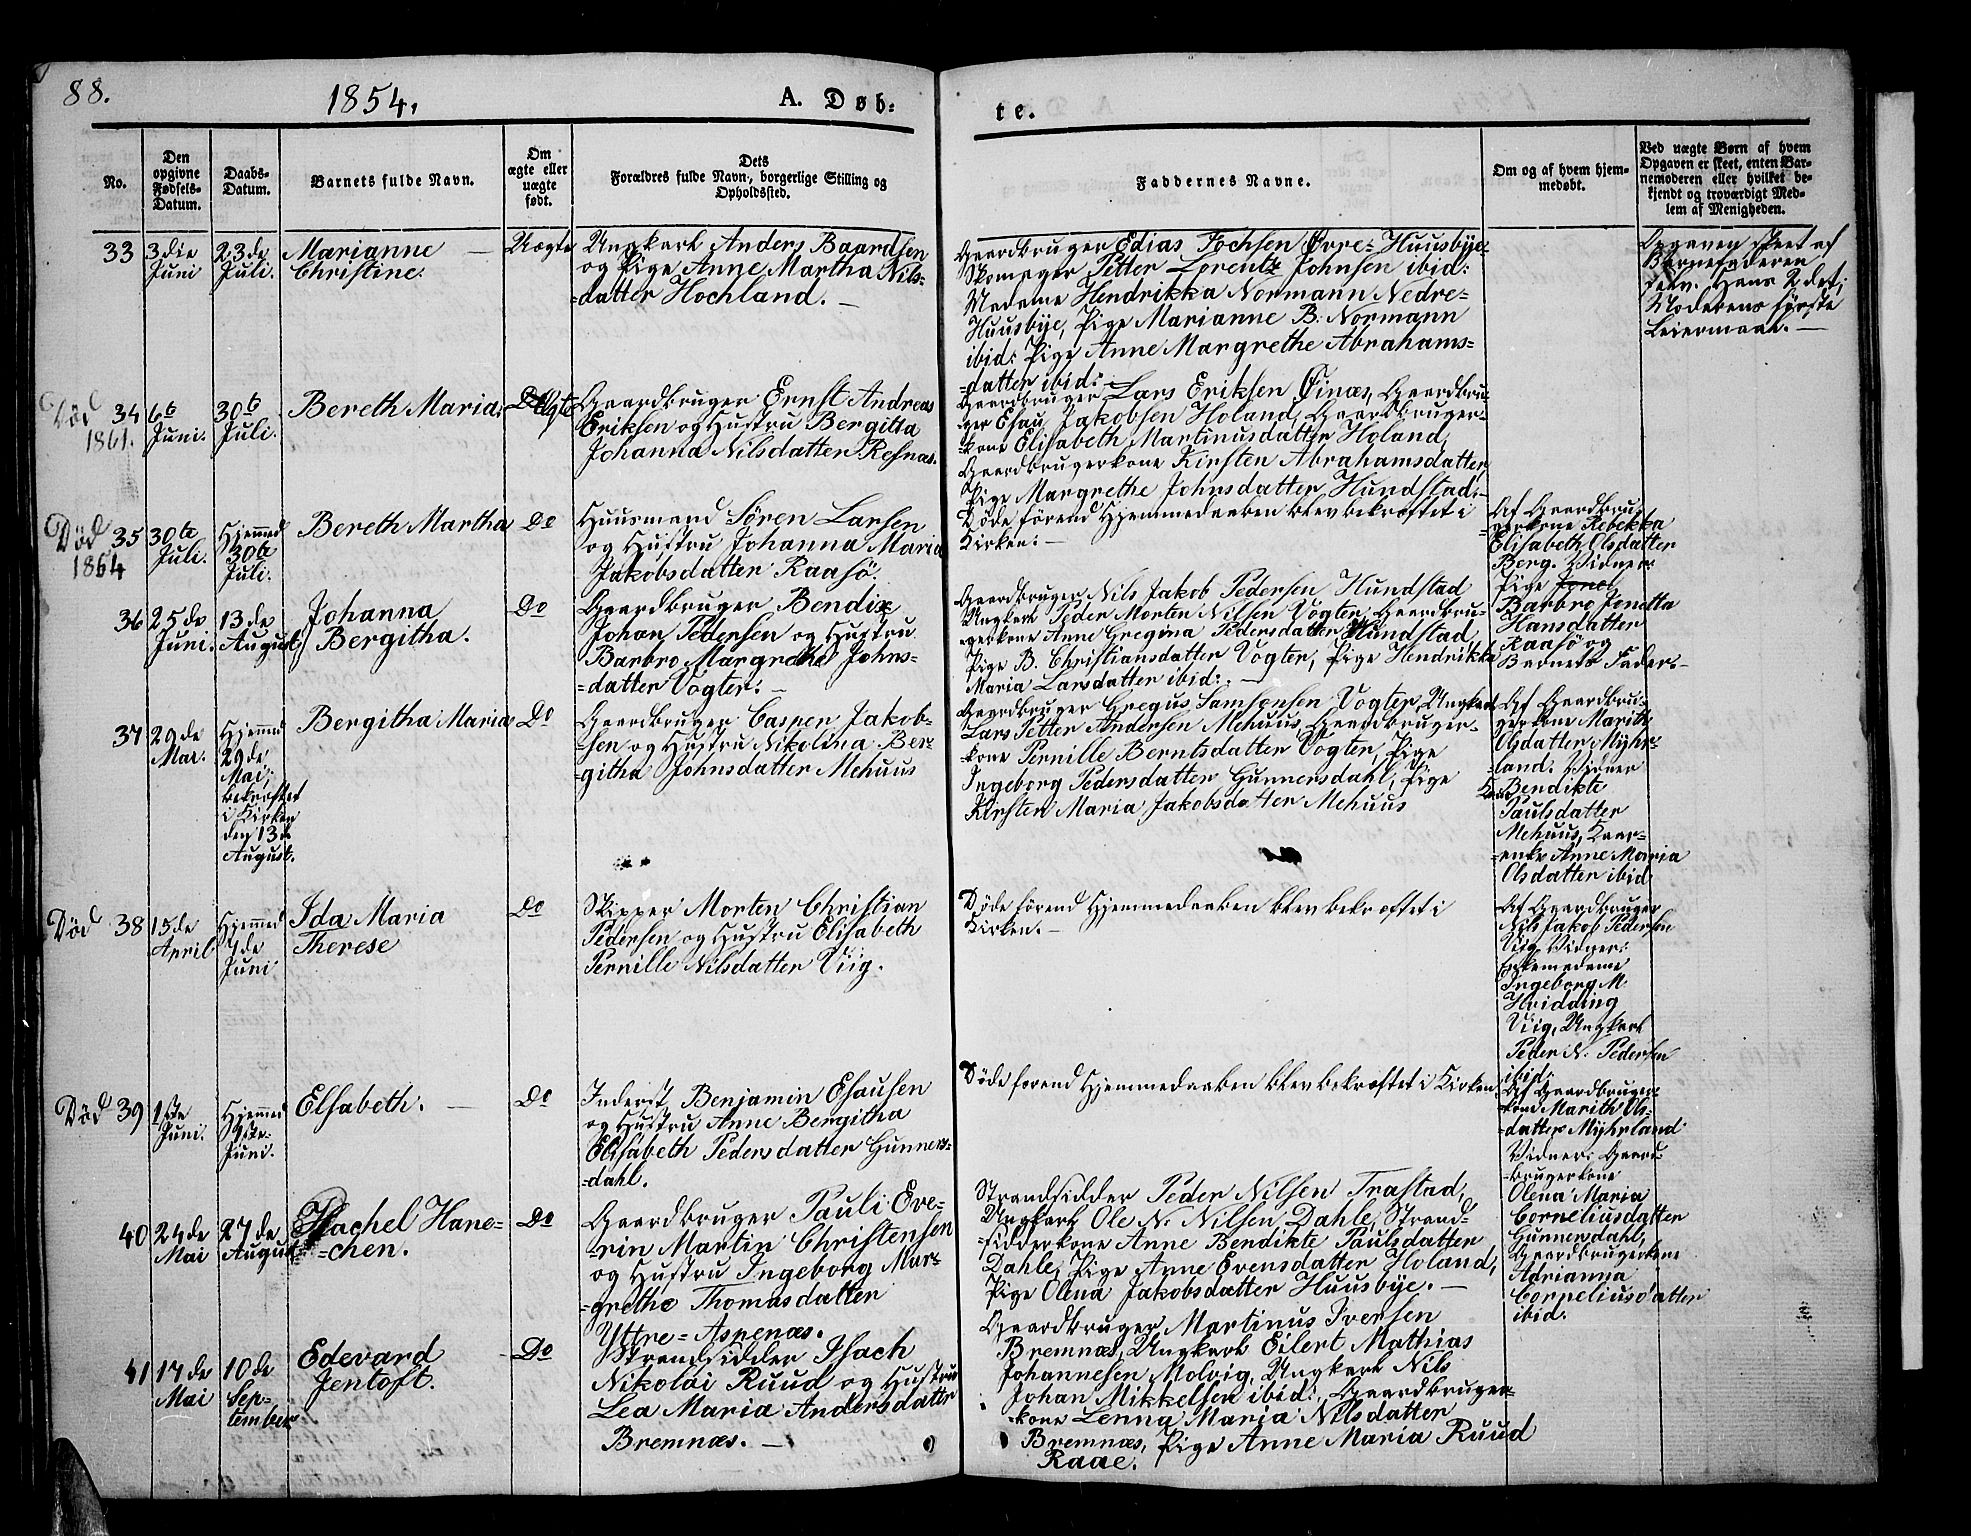 88.
1854.
A. Døb=
te.
No.
Den
opgivne
Fødsels-
Datum.
Daabs-
Datum.
Barnets fulde Navn.
Om
ægte eller
uægte
født.
Dets
Forældres fulde Navn, borgerlige Stilling og
Opholdssted.
Faddernes Navne.
Om og af hvem hjem-
medøbt.
Ved uægte Børn af hvem
Opgaven er skeet, enten Bar-
nemoderen eller hvilket be-
kjendt og troværdigt Med-
lem af Menigheden.
33
3die
Juni
23de
Juli.
Marianne
Christine.
Uægte
Ungkarl Anders Baardsen
og Pige Anne Martha Nils-
=datter Hochland. —
Gaardbruger Edias Fochsen Øvre-Huusbye
Skomager Petter Lorentz Johnsen ibid:
Madame Hendrikka Normann Nedre-
Huusbye, Pige Marianne B: Normann
ibid: Pige Anne Margrethe Abrahams=
=datter ibid: —
Opgaven skeet af
Barnefaderen
Hans 2det,
Moderens første
Leiermaal. —
Død
1861.
34
6te
Juni.
30te
Juli.
Bereth Maria.
Ægte
Gaardbruger Ernst Andreas
Eriksen og Hustru Bergitta
Johanna Nilsdatter Resnæs.
Gaardbruger Lars Eriksen Øinæs, Gaardbru-
ger Esau Jakobsen Holand, Gaardbruger-
=kone Elisabeth Martinusdatter Holand,
Gaardbrugerkone Kirsten Abrahamsdatter,
Pige Margrethe Johnsdatter Hundstad. —
Død
1864
35
30te
Juli.
Hjemmed
30te
Juli.
Bereth Martha
Do
Huusmand Søren Larsen
og Hustru Johanna Maria
Jakobsdatter Raasø.
Døde førend Hjemmedaaben blev bekræftet i
Kirken. —
Af Gaardbru-
gerkone Rebekka
Elisabeth Olsdatter
Berg. Vidner:
Pige
Barbro Jonetta
Hansdatter
Raasø og
Barnets Fader. —
36
25de
Juni.
13de
August
Johanna
Bergitha.
Do
Gaardbruger Bendix
Johan Pedersen og Hustru
Barbro Margrethe Johns=
=datter Vogter. —
Gaardbruger Nils Jakob Pedersen Hundstad
Ungkarl Peder Morten Nilsen Vogter, Gaardbru-
=gerkone Anne Gregina Pedersdatter Hundstad,
Pige B. Christiansdatter Vogter, Pige Hendrikka
Maria Larsdatter ibid: —
37
29de
Mai.
Hjemmed
29de
Mai:
bekræftet
i Kirken
den 13de
August.
Bergitha Maria
Do
Gaardbruger Casper Jakob-
=sen og Hustru Nikolina Ber-
githa Johnsdatter Mehuus
Gaardbruger Gregus Samsonsen Vogter, Ungkarl
Lars Petter Andersen Mehuus, Gaardbruger-
=kone Pernille Berntsdatter Vogter, Pige
Ingeborg Pedersdatter Gunnersdahl, Pige
Kirsten Maria Jakobsdatter Mehuus
Af Gaardbru-
gerkone Marith
Olsdatter Myhr-
=land. Vidner
Bendikte
Paulsdatter
Mehuus,
Anne Maria
Olsdatter ibid
Død
38
15de
April
Hjemmed
7de
Juni
Ida Maria
Therese
Do
Skipper Morten Christian
Pedersen og Hustru Elisabeth
Pernille Nilsdatter Viig.
Døde førend Hjemmedaaben blev bekræftet i
Kirken. —
Af Gaardbruger
Nils Jakob Pedersen
Viig. Vidner:
Enkemadame
Ingeborg M.
Hvidding
Viig, Ungkarl
Peder N. Pedersen
ibid:
Død
39
1ste
Juni.
Hjemmed
9de
Juni.
Elsabeth. —
Do
Inderst Benjamin Esausen
og Hustru Anne Bergitha
Elisabeth Pedersdatter Gunners=
=dahl.
Døde førend Hjemmedaaben blev bekræftet i Kirken
Af Gaardbruger-
kone Marith Ols-
=datter Myhrland.
Vidner: Gaard-
brugerkone
Olena Maria
Corneliusdatter
Gunnersdahl,
Gaardbrugerkone
Adrianna
Corneliusdatter
ibid.
40
24de
Mai
27de
August
Rachel Hane=
=chen.
Do
Gaardbruger Pauli Eve=
=rin Martin Christensen
og Hustru Ingeborg Mar=
=grethe Thomasdatter
Yttre=Aspenæs.
Strandsidder Peder Nilsen Trastad,
Ungkarl Ole N. Nilsen Dahle, Strand-
=sidderkone Anne Bendikte Paulsdatter
Dahle, Pige Anne Evensdatter Holand,
Pige Olena Jakobsdatter Huusbye. —
41
17de
Mai
10de
Sep-
tember
Edevard
Jentoft.
Do
Strandsidder Isach
Nikolai Ruud og Hustru
Lea Maria Andersdatter
Bremnæs. —
Gaardbruger Martinus Iversen
Bremnæs, Ungkarl Eilert Mathias
Johannesen Molvig, Ungkarl Nils
Johan Mikkelsen ibid:, Gaardbruger-
=kone Lenna Maria Nilsdatter
Bremnæs, Pige Anne Maria Ruud
Raae.